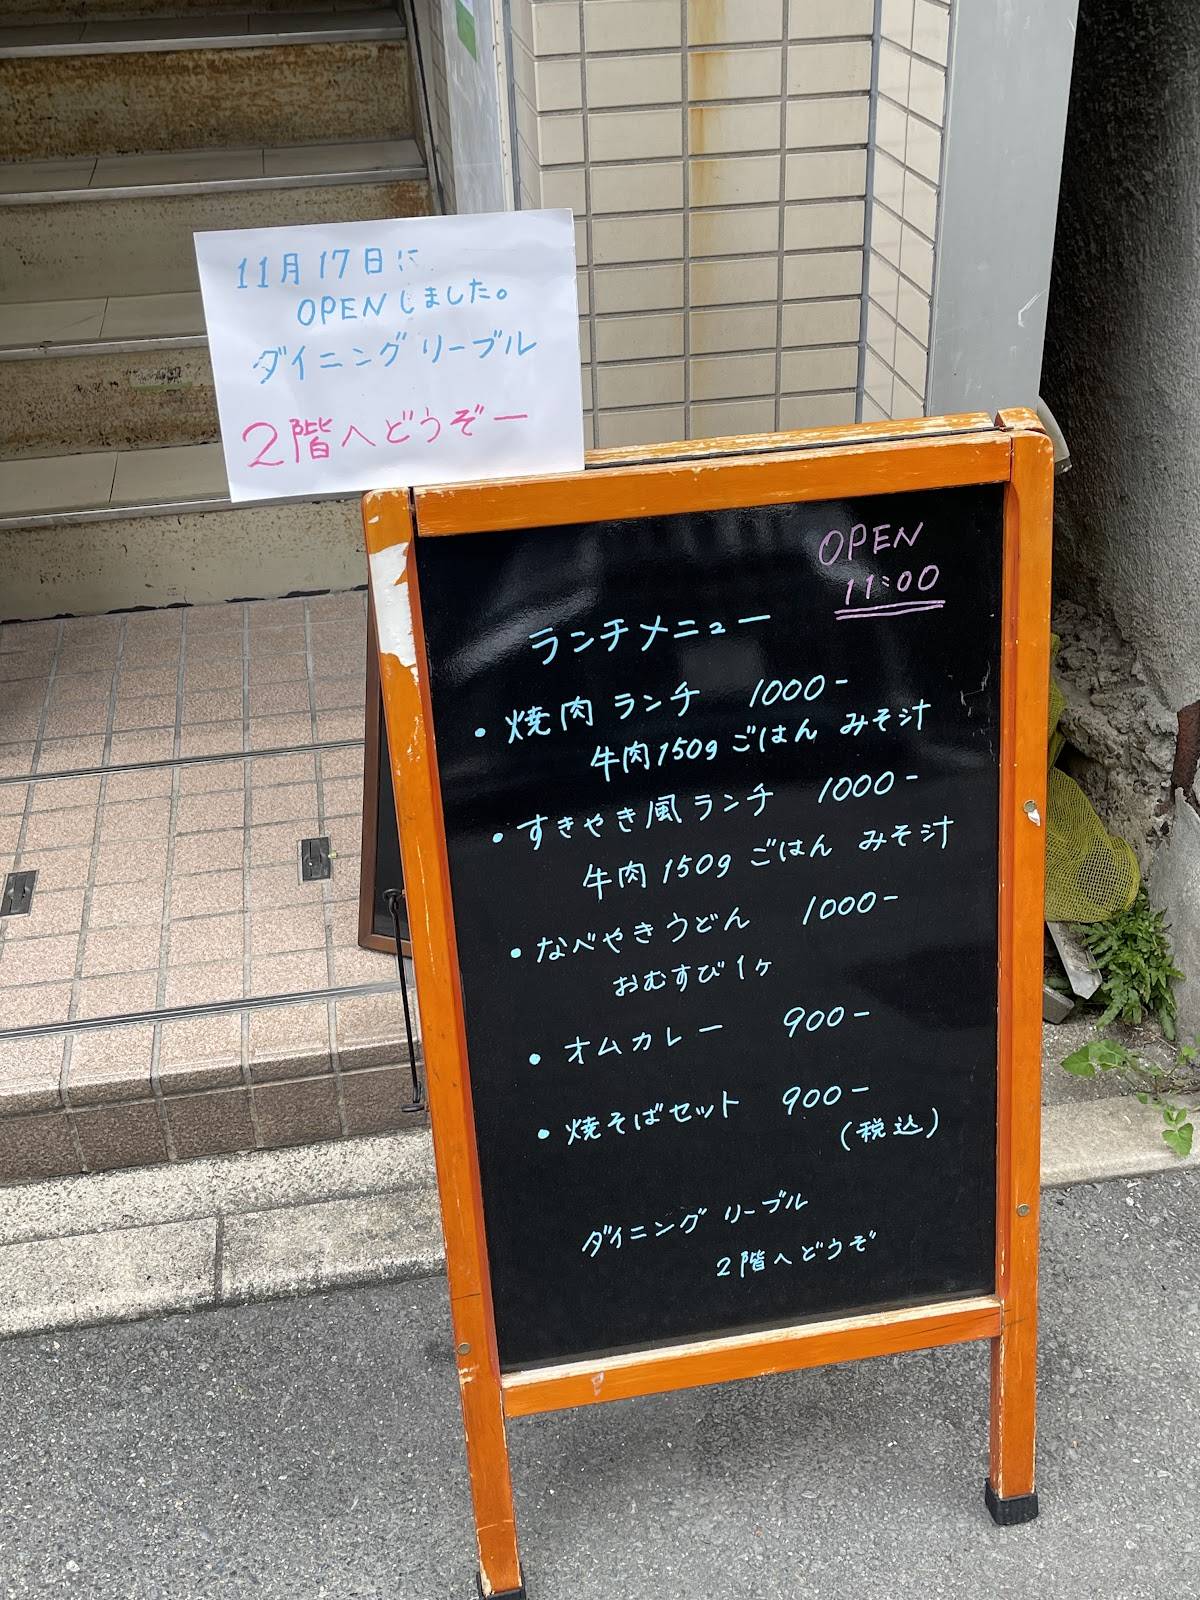 11月17日に
OPENしました。
ダイニングリーブル
2階へどうぞー
OPEN
11:00
ランチメニュー
・焼肉ランチ 1000-
牛肉150g ごはん みそ汁
・すきやき風ランチ 1000-
牛肉150g ごはん みそ汁
・なべやきうどん 1000-
おむすび1ヶ
・オムカレー 900-
・焼そばセット 900-
(税込)
ダイニングリーブル
2階へどうぞ